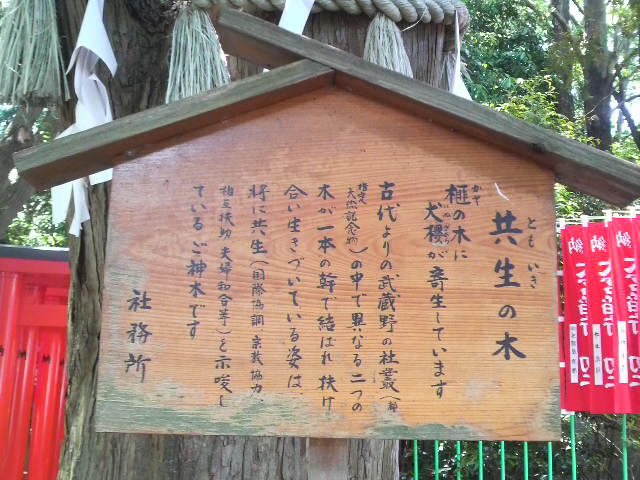 共生の木
とも いき
榧の木に
かや
犬櫻が寄生しています
いぬざくら
古代よりの武蔵野の社叢(都
指定
天然記念物)の中で異なる二つの
木が一本の幹で結ばれ扶け
合い生きづいている姿は
将に共生(国際協調、宗教協力
相互扶助、夫婦和合等)を示唆し
ているご神木です
社務所
納
納
納